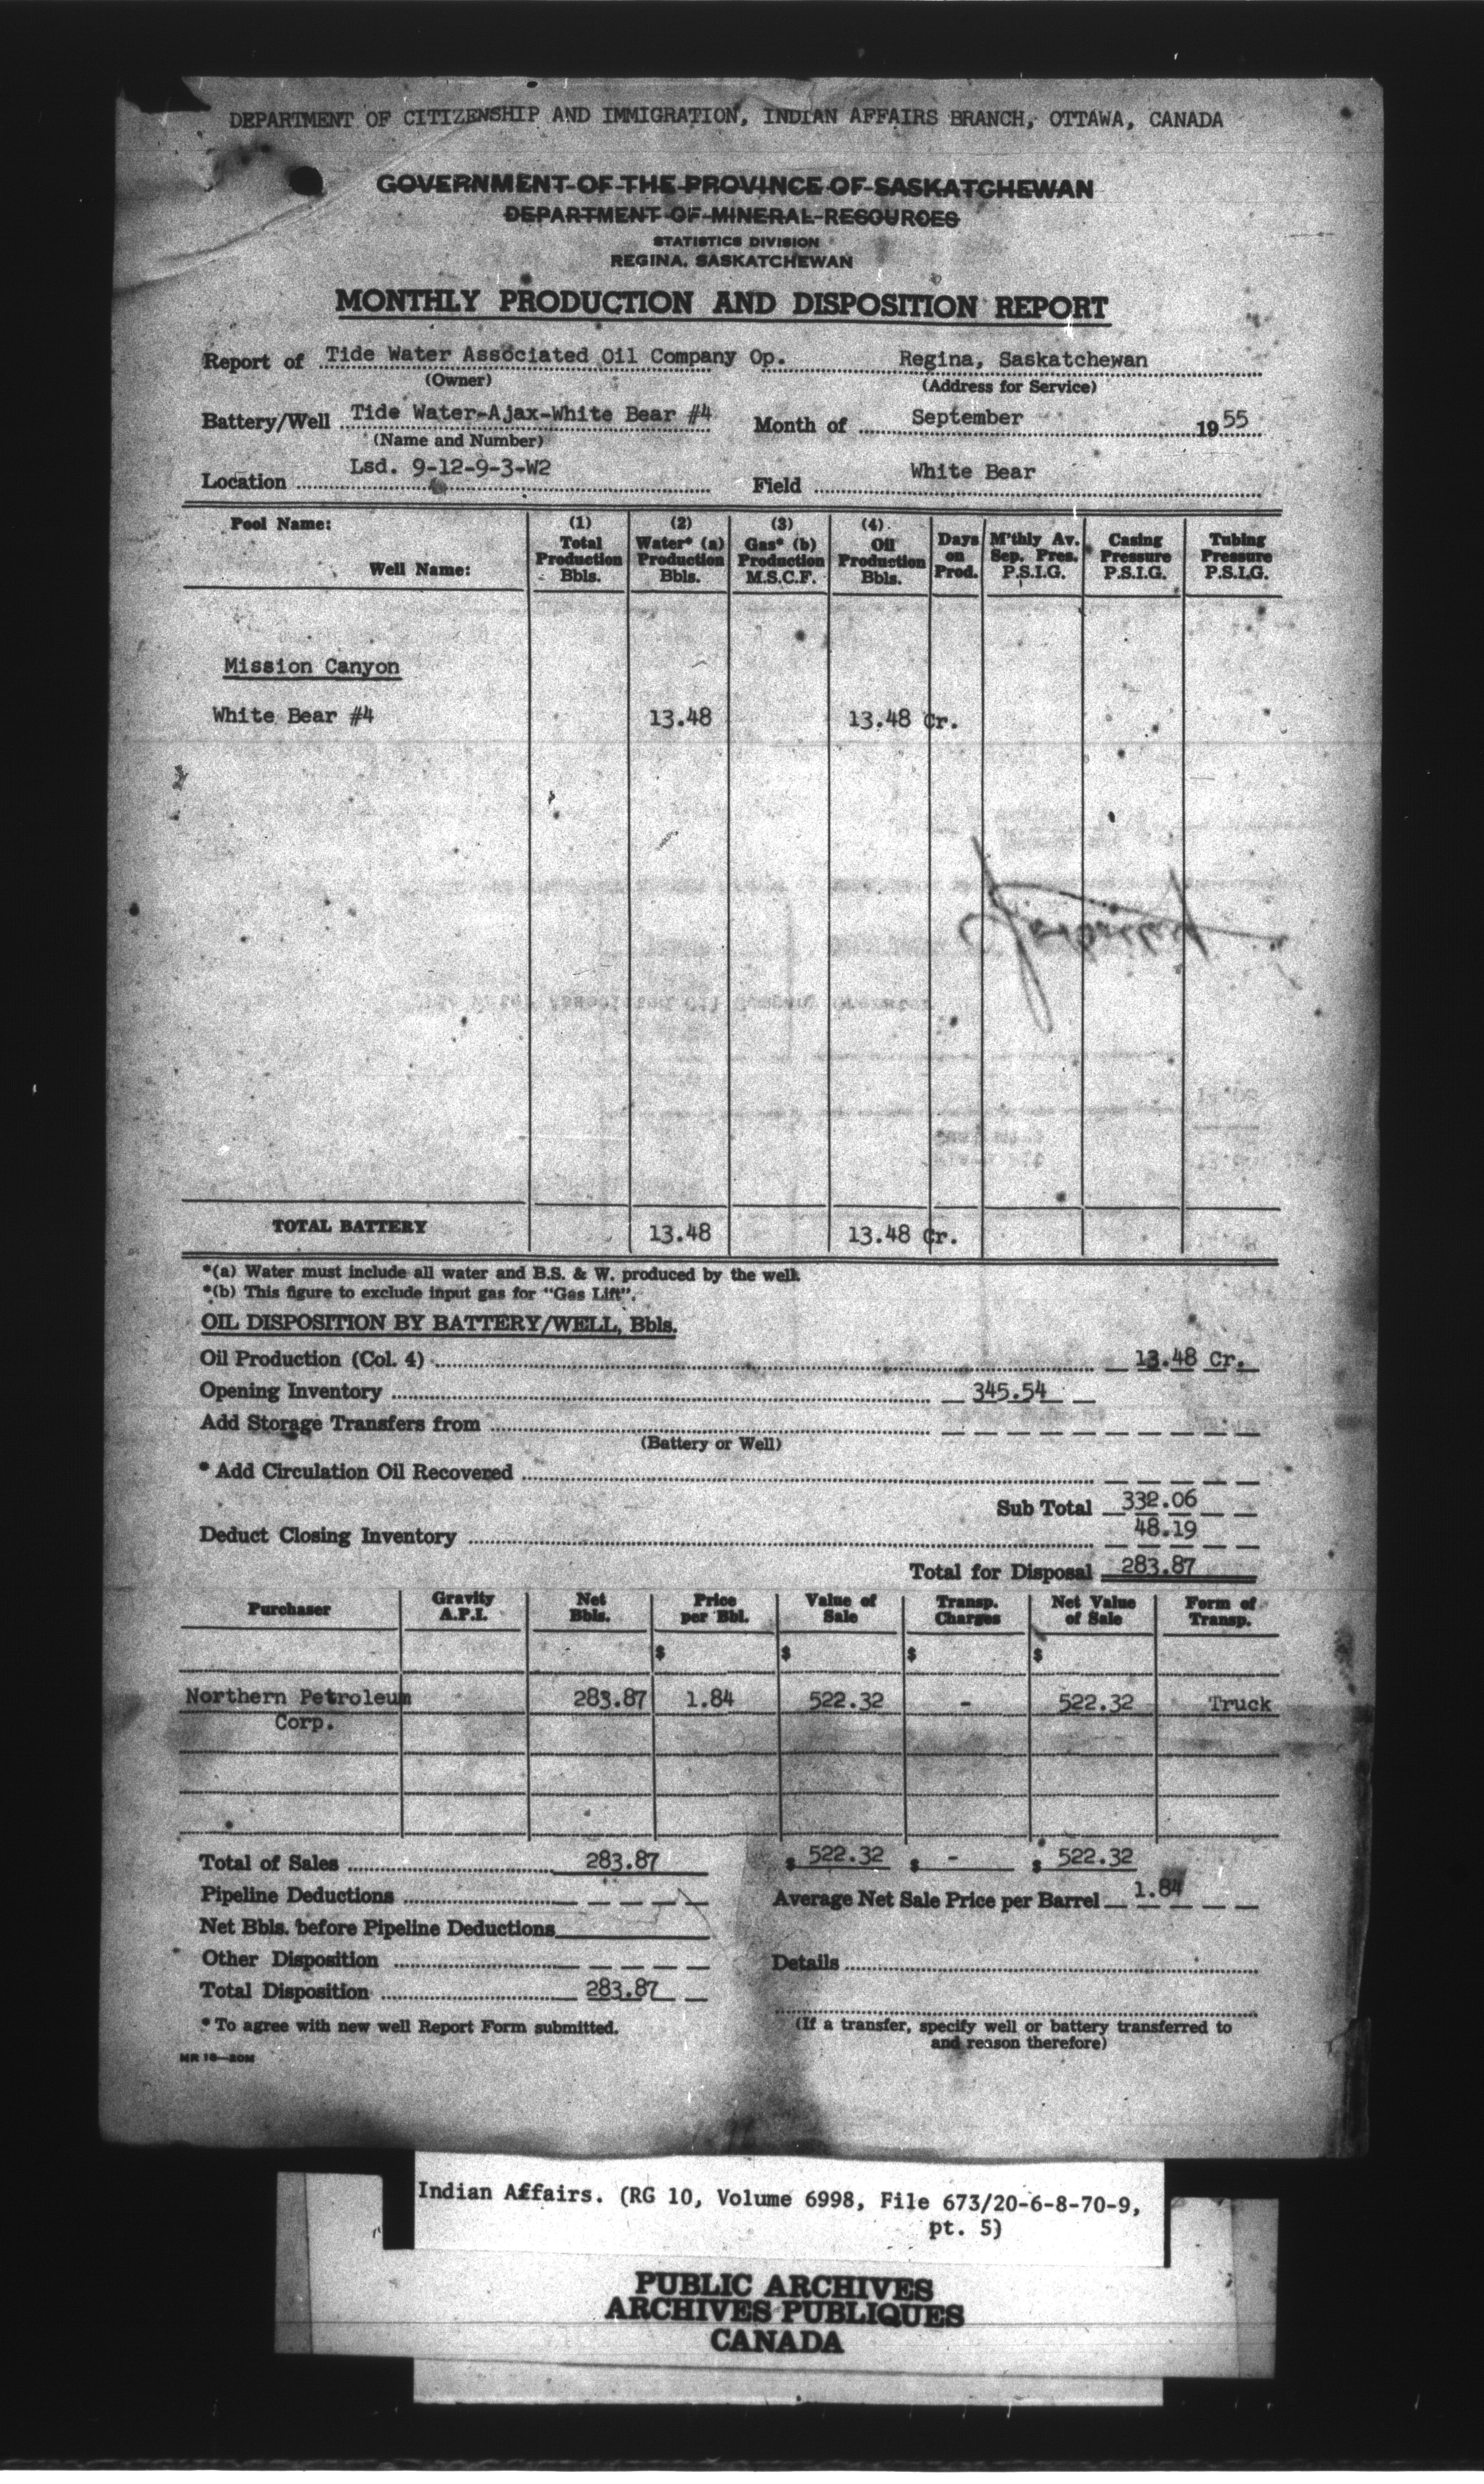 DEPARTMENT OF CITIZENSHIP AND IMMIGRATION, INDIAN AFFAIRS BRANCH, OTTAWA, CANADA
GOVERNMENT OF THE PROVINCE OF SASKATCHEWAN
DEPARTMENT OF MINERAL RESOURCES
STATISTICS DIVISION
REGINA, SASKATCHEWAN
MONTHLY PRODUCTION AND DISPOSITION REPORT
Report of Tide Water Associated Oil Company Op. Regina, Saskatchewan
(Owner) (Address for Service)
Battery/Well Tide Water-Ajax-White Bear #4 Month of September 1955
(Name and Number)
Location Lsd. 9-12-9-3-W2 Field White Bear
Pool Name: (1) (2) (3) (4)
Well Name: Total Production Bbls. Water* (a) Production Bbls. Gas* (b) Production M.S.C.F. Oil Production Bbls. Days on Prod. M'thly Av. Sep. Pres. P.S.I.G. Casing Pressure P.S.I.G. Tubing Pressure P.S.I.G.
Mission Canyon
White Bear #4 13.48 13.48 Cr.
TOTAL BATTERY 13.48 13.48 Cr.
*(a) Water must include all water and B.S. & W. produced by the well.
*(b) This figure to exclude input gas for "Gas Lift".
OIL DISPOSITION BY BATTERY/WELL, Bbls.
Oil Production (Col. 4) 13.48 Cr.
Opening Inventory 345.54
Add Storage Transfers from
(Battery or Well)
* Add Circulation Oil Recovered
Sub Total 332.06
Deduct Closing Inventory 48.19
Total for Disposal 283.87
Purchaser Gravity A.P.I. Net Bbls. Price per Bbl. Value of Sale Transp. Charges Net Value of Sale Form of Transp.
$ $ $ $
Northern Petroleum 283.87 1.84 522.32 - 522.32 Truck
Corp.
Total of Sales 283.87 $ 522.32 $ - $ 522.32
Pipeline Deductions Average Net Sale Price per Barrel 1.84
Net Bbls. before Pipeline Deductions
Other Disposition Details
Total Disposition 283.87
* To agree with new well Report Form submitted. (If a transfer, specify well or battery transferred to
and reason therefore)
MR 16—20M
Indian Affairs. (RG 10, Volume 6998, File 673/20-6-8-70-9,
pt. 5)
PUBLIC ARCHIVES
ARCHIVES PUBLIQUES
CANADA